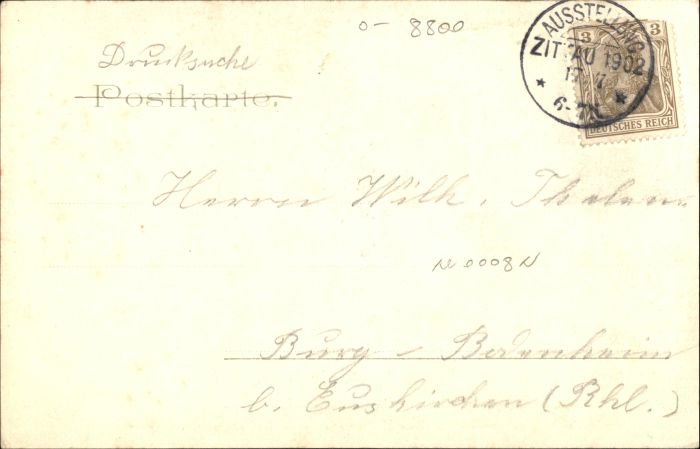 o- 8800
Drucksache
Postkarte.
AUSSTELLUNG
ZITTAU 1902
17 7
* 6-7N. *
3 3
DEUTSCHES REICH
Herrn Wilh.
N 0008 N
Burg - Bodenheim
b. Euskirchen (Rhl.)